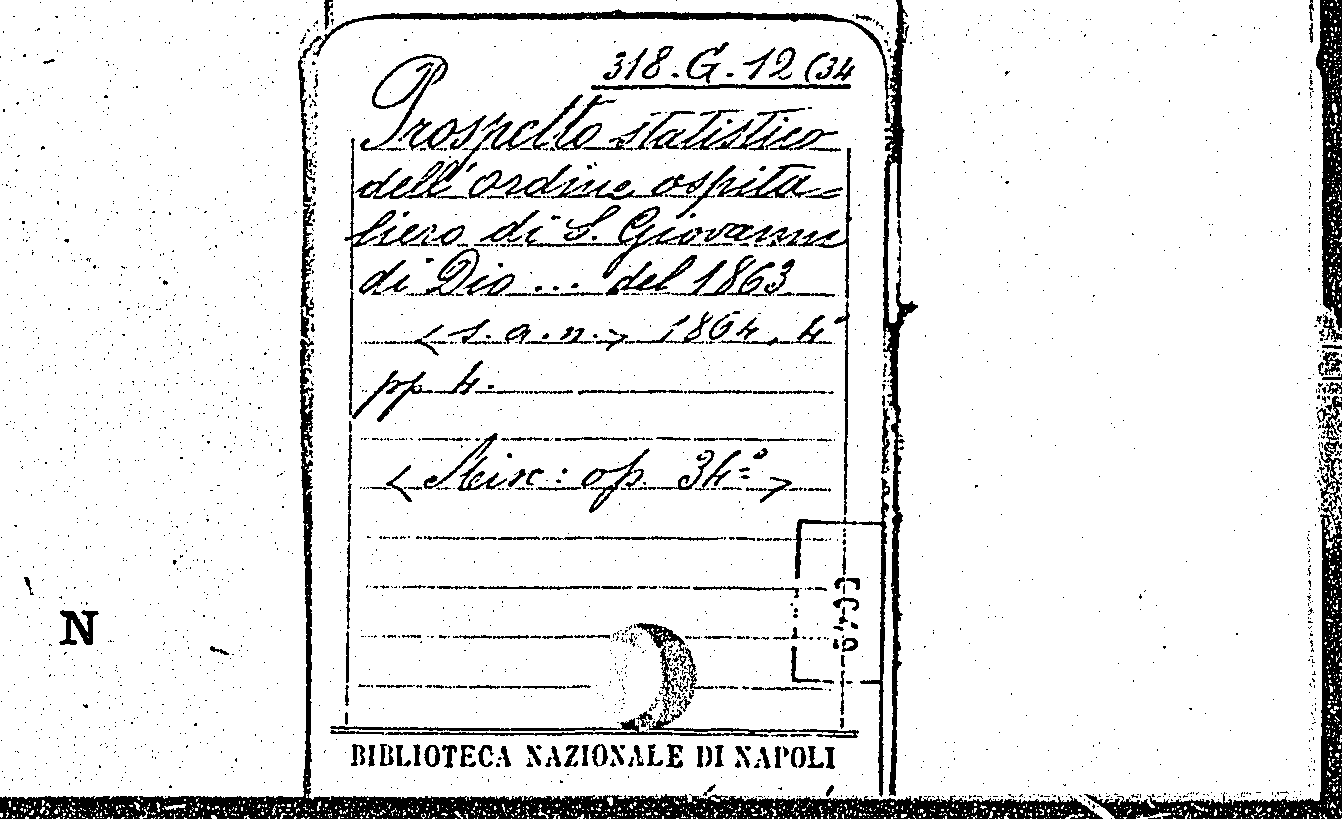 318.G.12(34
Prospetto statistico
dell'ordine ospita=
liero di S. Giovanni
di Dio ... del 1863
<s.a.n.> 1864, 4°
pp 4.
<Misc: op. 34°>
N
BIBLIOTECA NAZIONALE DI NAPOLI